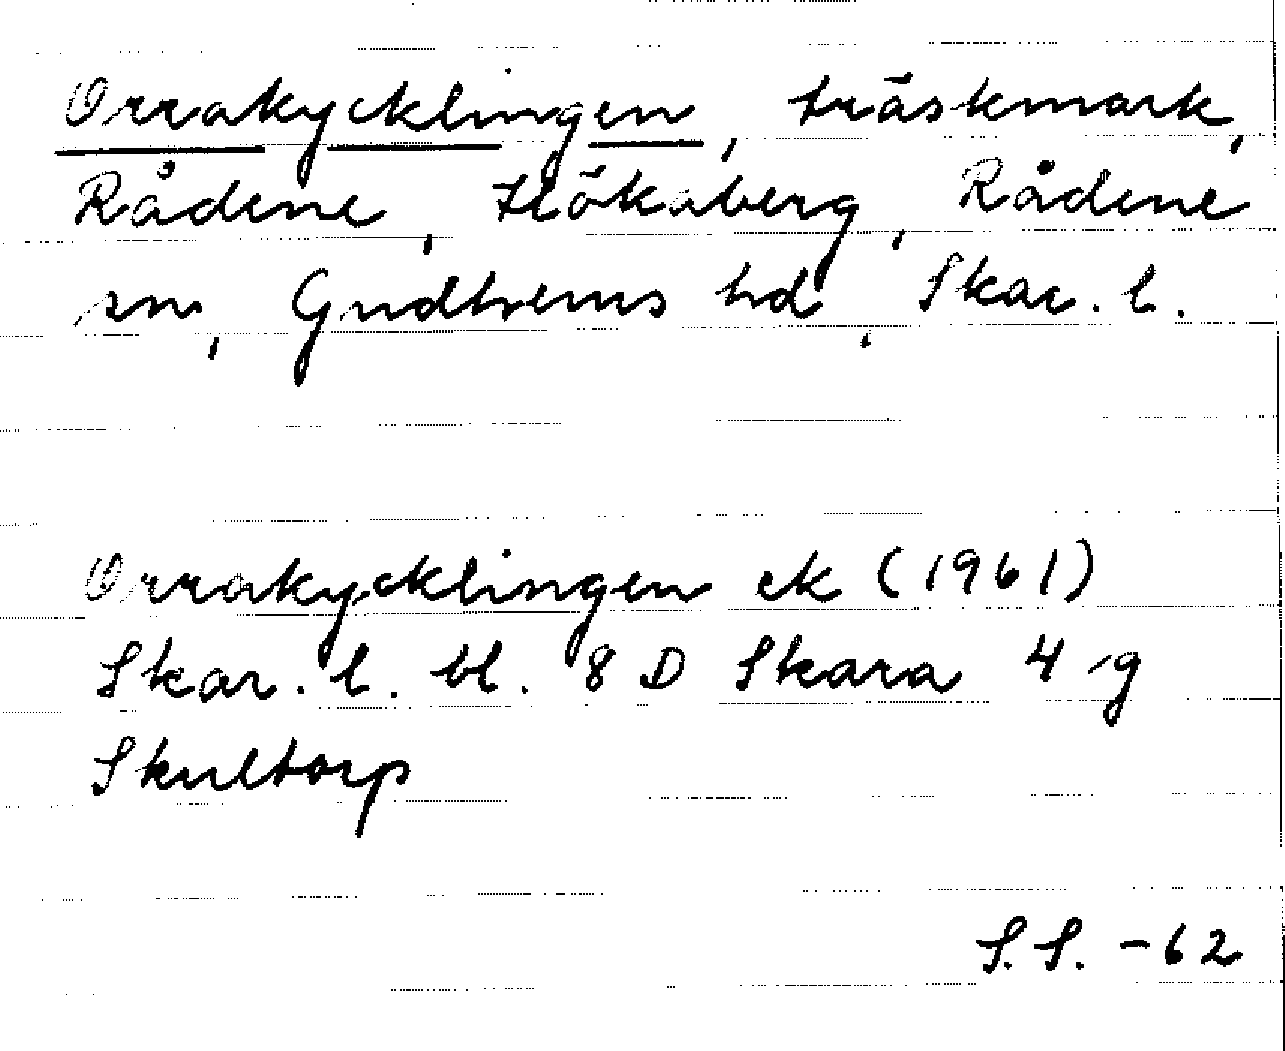 Orrakycklingen, träskmark,
Rådene, Hökaberg, Rådene
sn, Gudhems hd, Skar. l.
Orrakycklingen ek (1961)
Skar. l. bl. 8 D Skara 4 g
Skultorp
S.S. -62